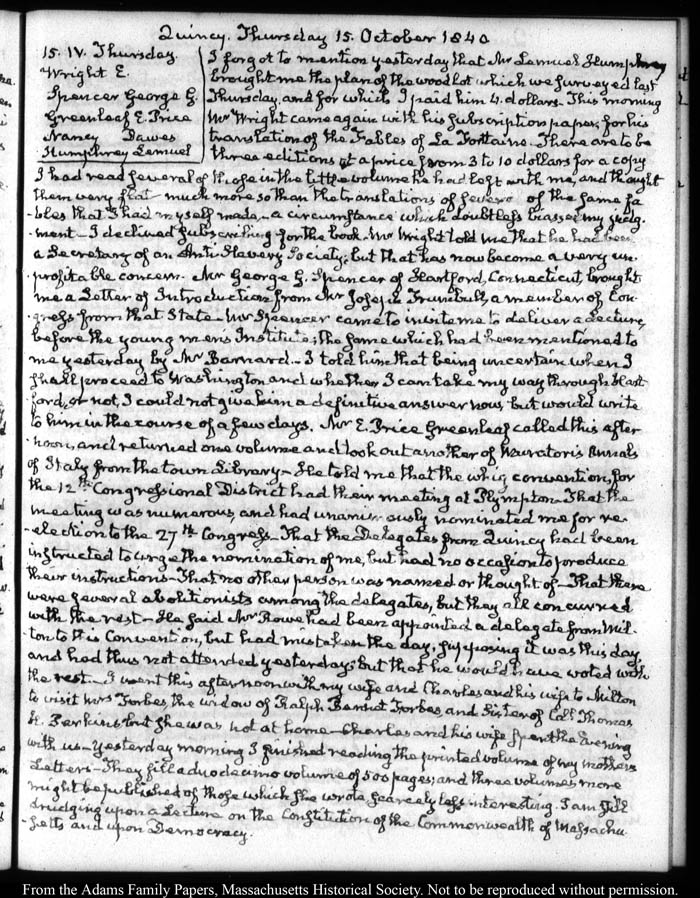 Quincy. Thursday 15. October 1840
15. IV. Thursday.
Wright E.
Spencer George G.
Greenleaf E. Price
Nancy Dawes
Humphrey Lemuel
I forgot to mention yesterday that Mr Lemuel Humphrey
brought me the plan of the wood lot which we surveyed last
Thursday, and for which I paid him 4. dollars. This morning
Mr Wright came again with his subscription paper, for his
translation of the Fables of La Fontaine. There are to be
three editions at a price from 3 to 10 dollars for a copy
I had read several of those in the little volume he had left with me, and thought
them very flat much more so than the translations of several of the same fa-
-bles that I had myself made_ a circumstance which doubtless biassed my judg-
-ment_ I declined subscribing for the book. Mr Wright told me that he had been
a Secretary of an Anti Slavery Society; but that has now become a very un-
-profitable concern_ Mr George G. Spencer of Hartford, Connecticut, brought
me a Letter of Introduction from Mr Joseph Trumbull, a member of Con-
-gress from that State_ Mr Spencer came to invite me to deliver a Lecture,
before the young mens Institute; the same which had been mentioned to
me yesterday by Mr Barnard_ I told him that being uncertain when I
shall proceed to Washington and whether I can take my way through Hart-
-ford, or not, I could not give him a definitive answer now, but would write
to him in the course of a few days. Mr E. Price Greenleaf called this after-
-noon, and returned one volume and took out another of Muratori's Annals
of Italy from the town Library_ He told me that the whig convention, for
the 12th Congressional District had their meeting at Plympton_ That the
meeting was numerous, and had unanimously nominated me for re-
-election to the 27th Congress_ That the Delegates from Quincy had been
instructed to urge the nomination of me, but had no occasion to produce
their instructions_ That no other person was named or thought of_ That there
were several abolitionists among the delegates, but they all concurred
with the rest_ He said Mr Rowe had been appointed a delegate from Mil-
-ton to this Convention, but had mistaken the day, supposing it was this day
and had thus not attended yesterday; but that he would have voted with
the rest_ I went this afternoon with my wife and Charles and his wife to Milton
to visit Mrs Forbes, the widow of Ralph Bennet Forbes, and Sister of Coll Thomas
H. Perkins but she was not at home_ Charles and his wife spent the evening
with us_ Yesterday morning I finished reading the printed volume of my mothers
Letters_ They fill a duodecimo volume of 500 pages; and three volumes more
might be published of those which she wrote scarcely less interesting. I am still
drudging upon a Lecture on the Constitution of the Commonwealth of Massachu-
-setts and upon Democracy.
From the Adams Family Papers, Massachusetts Historical Society. Not to be reproduced without permission.